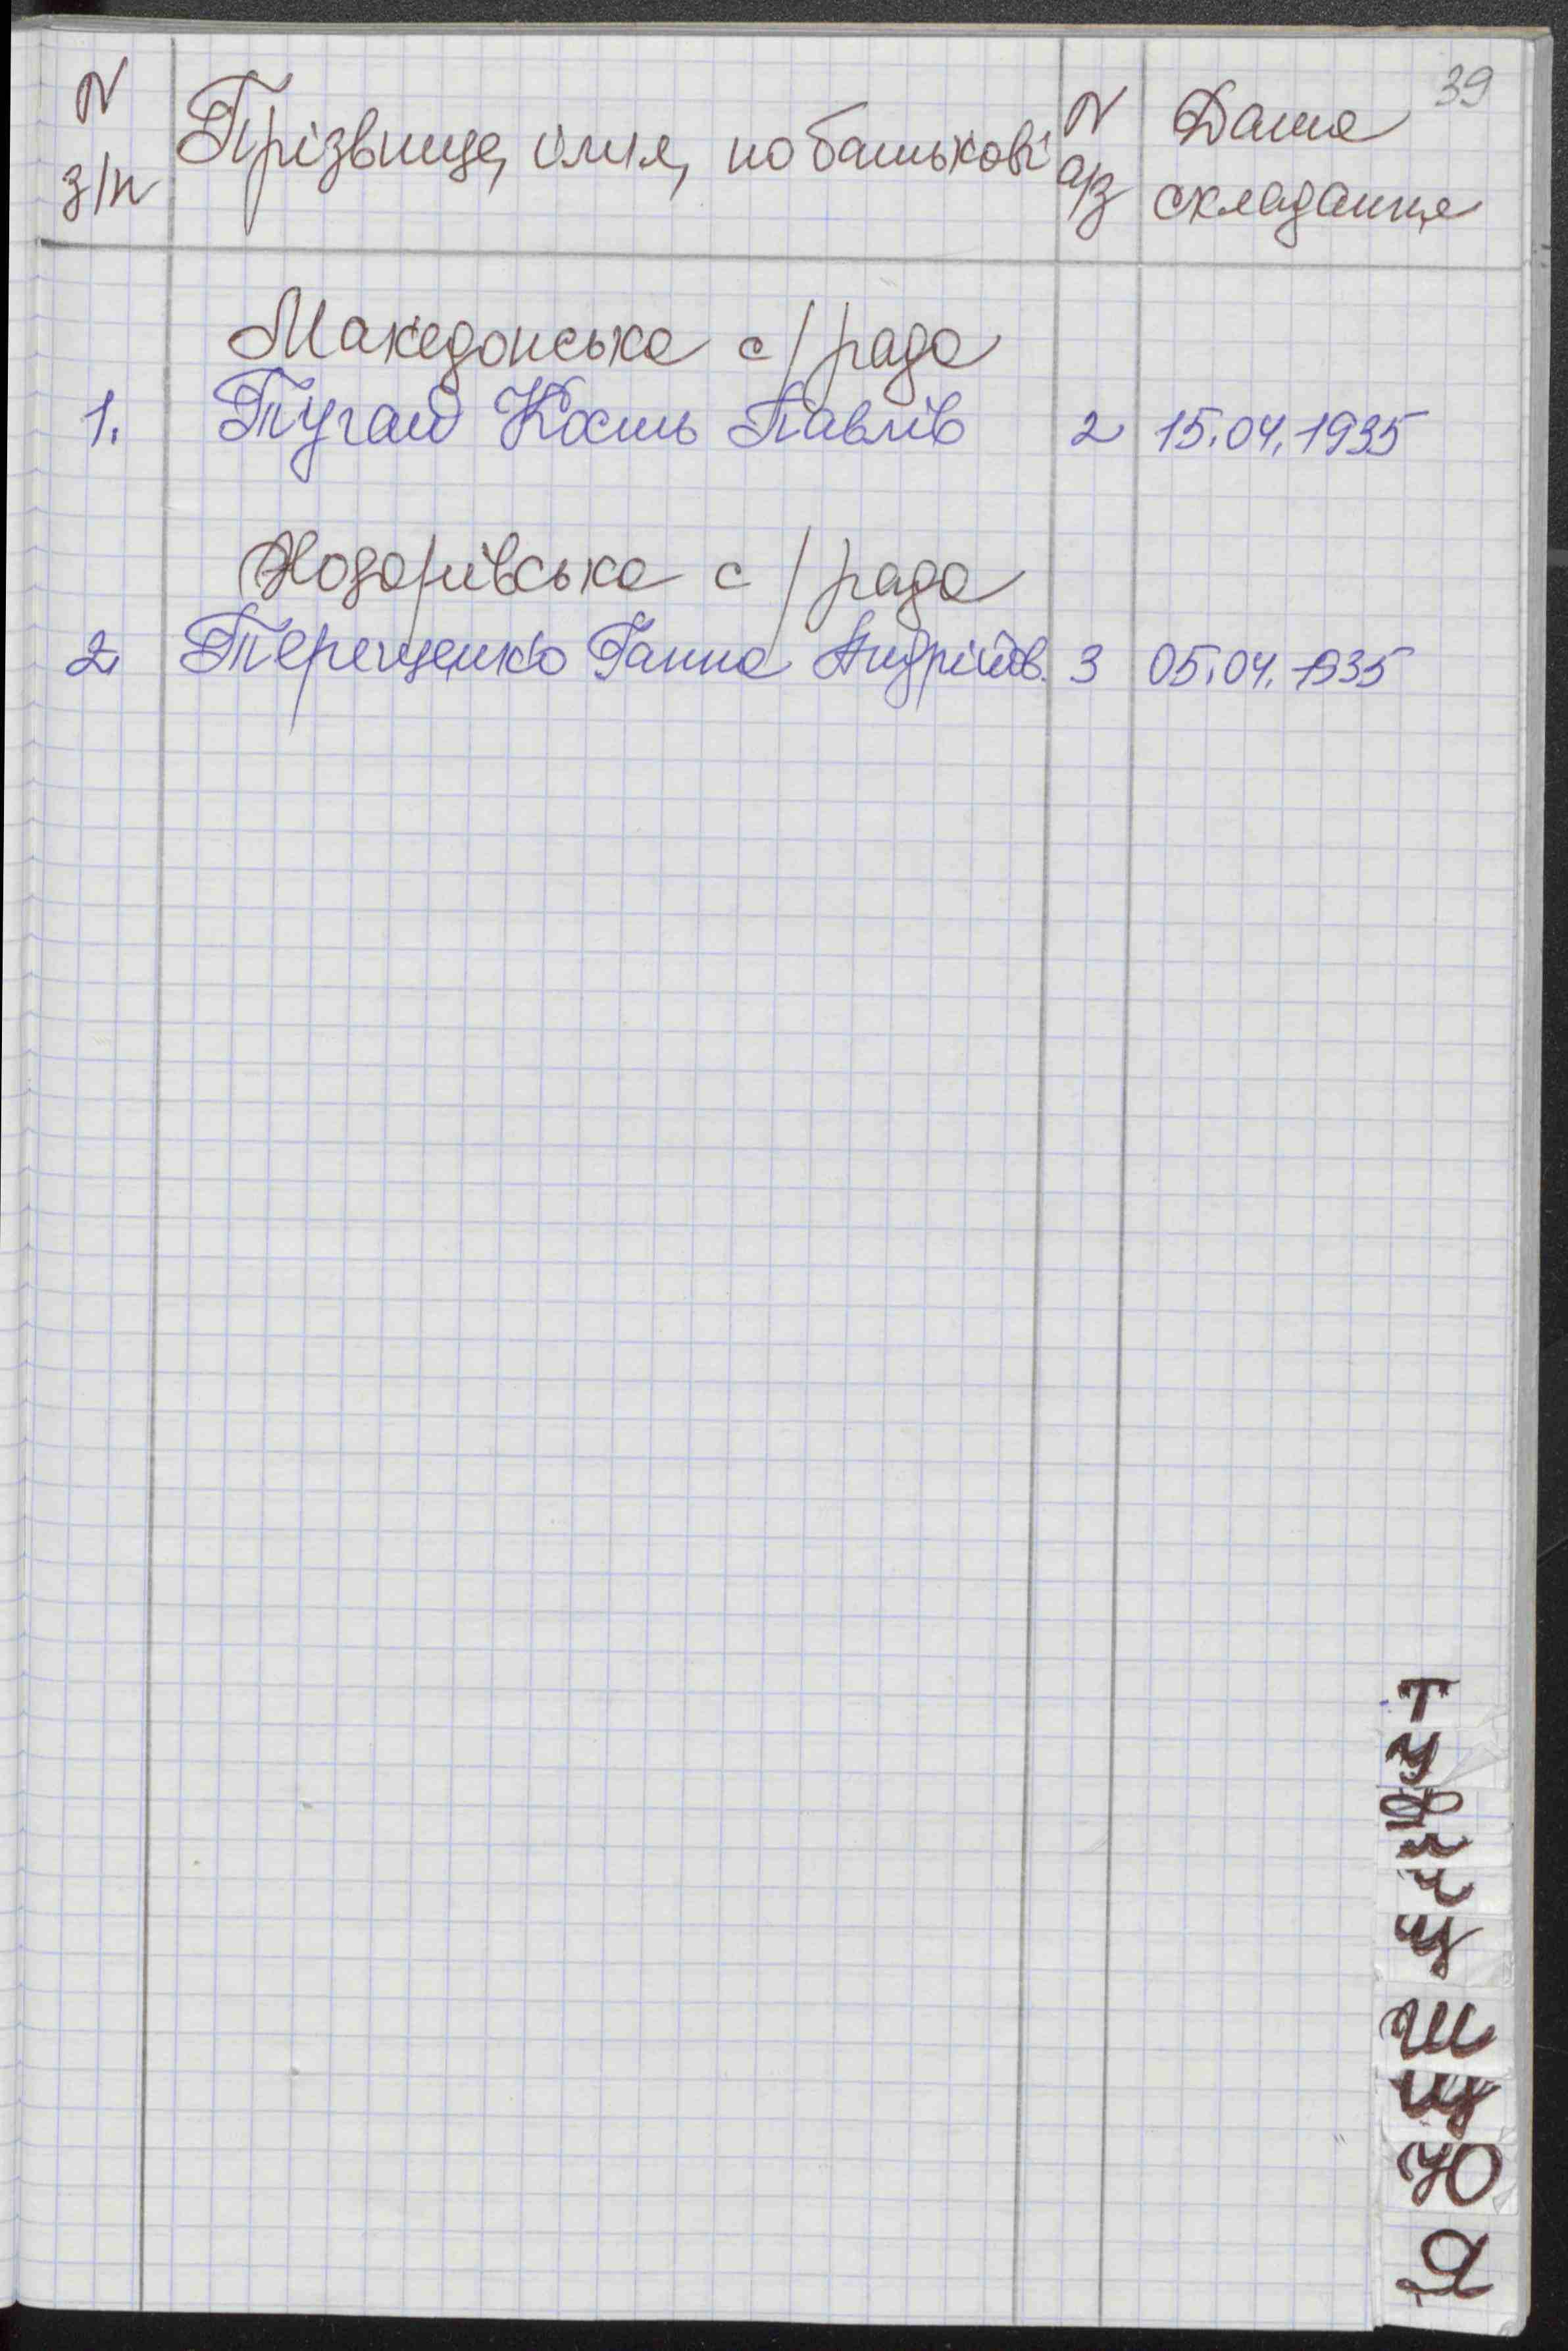 39
N з/п Прізвище, імя, по батькові N а/з Дата складання
Македонська с/рада
1. Тугай Кость Павлів 2 15.04.1935
Ходорівська с/рада
2. Терещенко Ганна Андріїв. 3 05.04.1935
Т
У
Ф
Х
Ц
Ч
Ш
Щ
Ю
Я